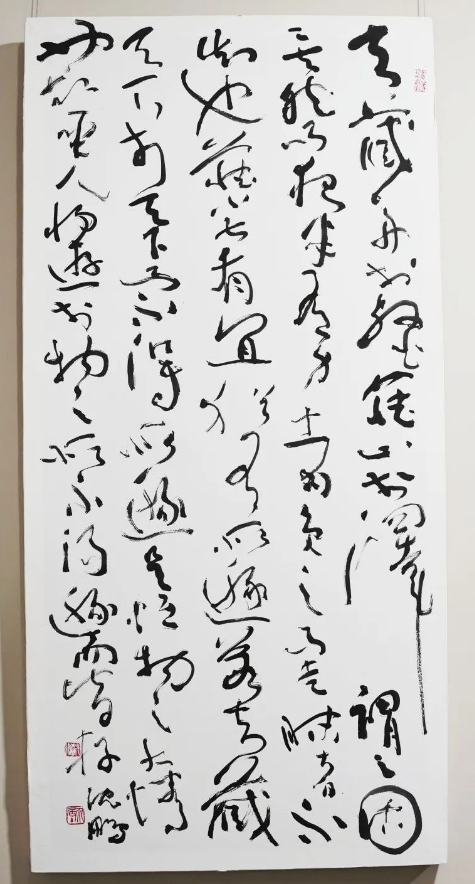 夫藏舟於壑藏山於澤謂之固
矣然而夜半有力者負之而走昧者不
知也藏小大有宜猶有所遯若夫藏
天下於天下而不得所遯是恆物之大情
也故聖人將遊於物之所不得遯而皆存 沈鵬